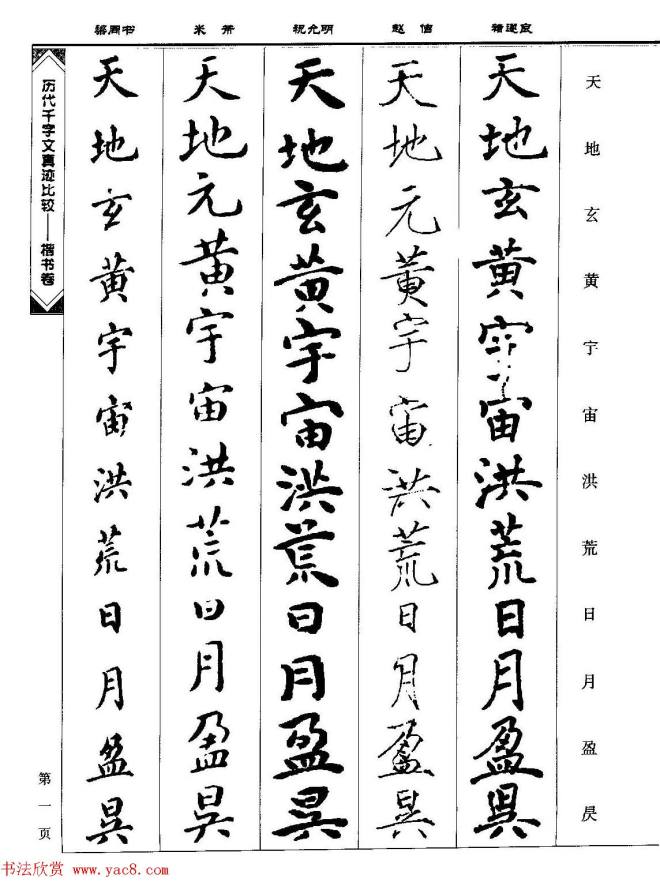 天地玄黄宇宙洪荒日月盈昃
褚遂良
天地玄黄宇宙洪荒日月盈昃
赵佶
天地元黄宇宙洪荒日月盈昃
祝允明
天地玄黄宇宙洪荒日月盈昃
米芾
天地元黄宇宙洪荒日月盈昃
梁同书
天地玄黄宇宙洪荒日月盈昃
历代千字文真迹比较——楷书卷
第一页
书法欣赏 www.yac8.com